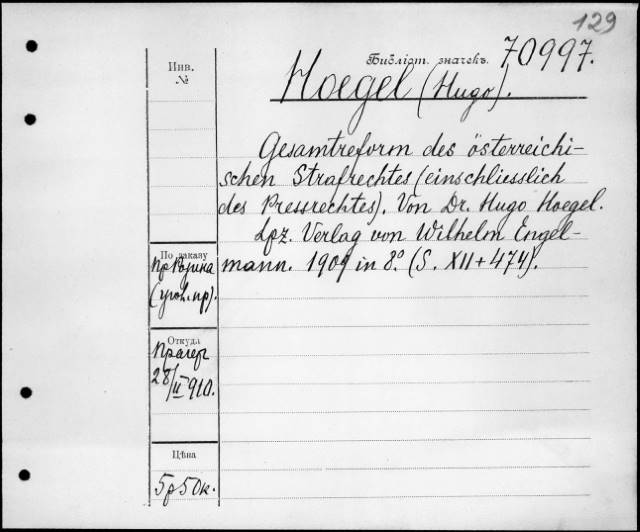 129
Инв.
№
Библіот. значекъ. 70997.
Hoegel (Hugo).
Gesamtreform des österreichi-
schen Strafrechtes (einschliesslich
des Pressrechtes). Von Dr. Hugo Hoegel.
Lpz. Verlag von Wilhelm Engel-
mann. 1909 in 8º. (S. XII + 474).
По заказу
(угол. пр).
Откуда
Прагер
28/II 910.
Цѣна
5 р 50 к.